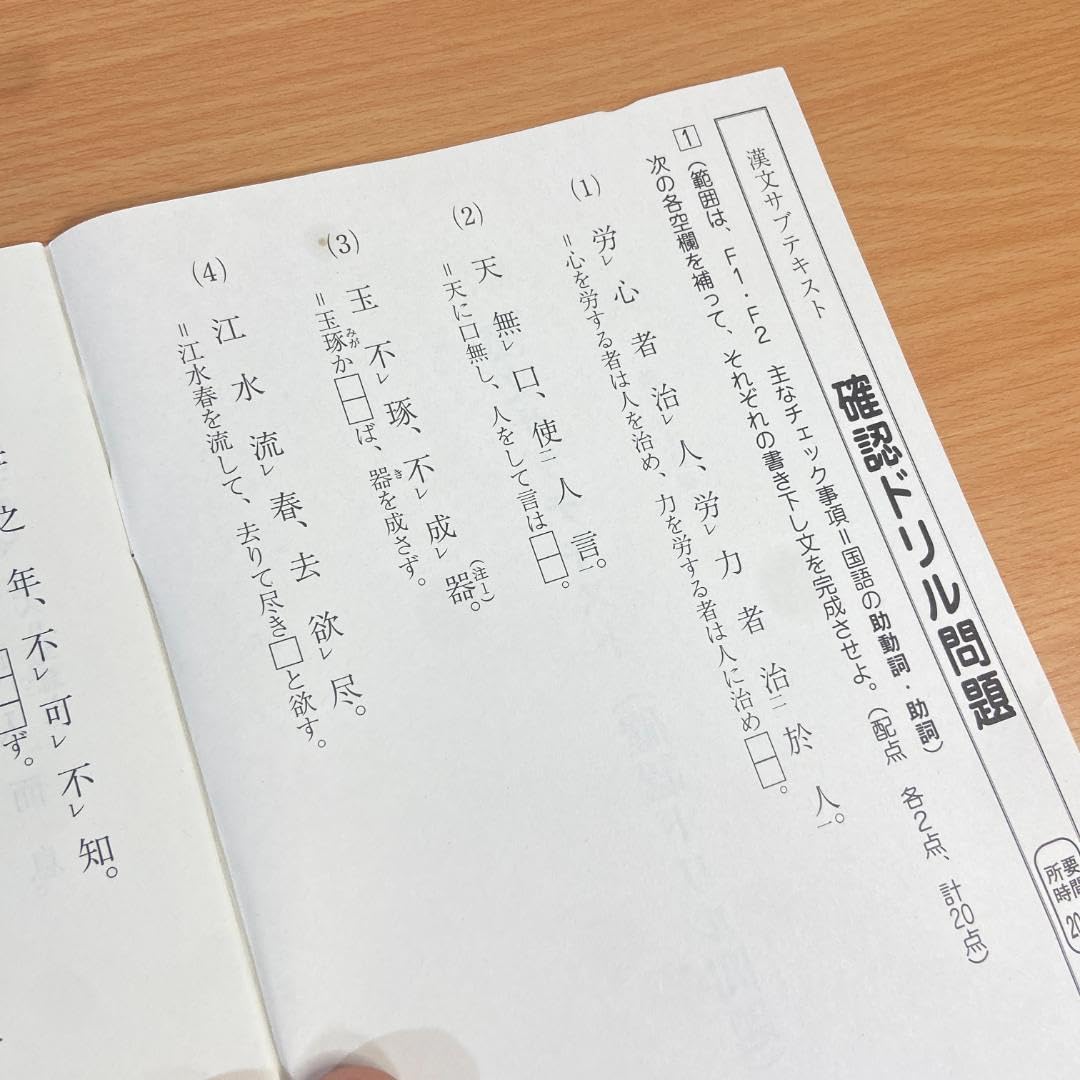 漢文サブテキスト　確認ドリル問題
所要
時間
20
1 (範囲は、F1・F2　主なチェック事項＝国語の助動詞・助詞)
次の各空欄を補って、それぞれの書き下し文を完成させよ。(配点　各2点、計20点)
(1) 労レ心者治レ人、労レ力者治二於人一。
＝心を労する者は人を治め、力を労する者は人に治め□□。
(2) 天無レ口、使二人言一。
＝天に口無し、人をして言は□□。
(3) 玉不レ琢、不レ成レ器(注1)。
＝玉琢(みが)か□□ば、器(き)を成さず。
(4) 江水流レ春、去欲レ尽。
＝江水春を流して、去りて尽き□と欲す。
之年、不レ可レ不レ知。
□□ず。